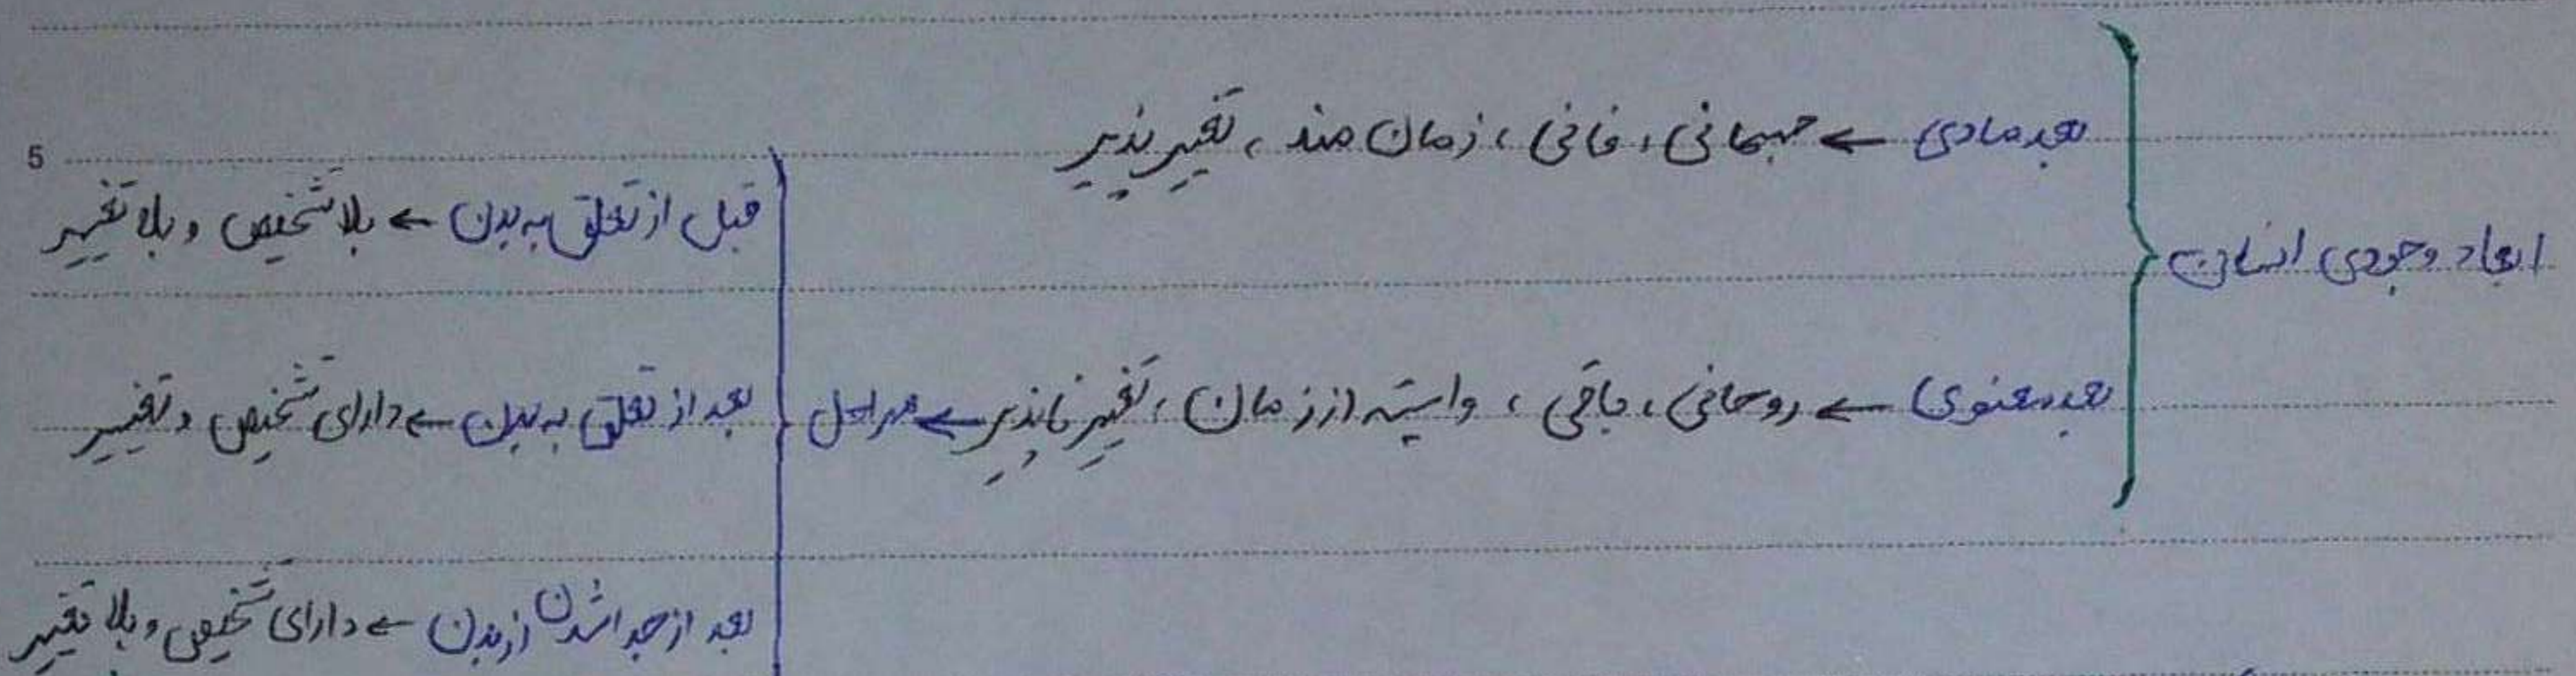 ابعاد وجودی انسان
بعد مادی ← جسمانی، فانی، زمان مند، تغییر پذیر
بعد معنوی ← روحانی، باقی، وابسته از زمان، تغییر ناپذیر ← مراحل
قبل از تعلق به بدن ← بلا تشخیص و بلا تغییر
بعد از تعلق به بدن ← دارای تشخیص و تغییر
بعد از جدا شدن از بدن ← دارای تشخیص و بلا تغییر
5